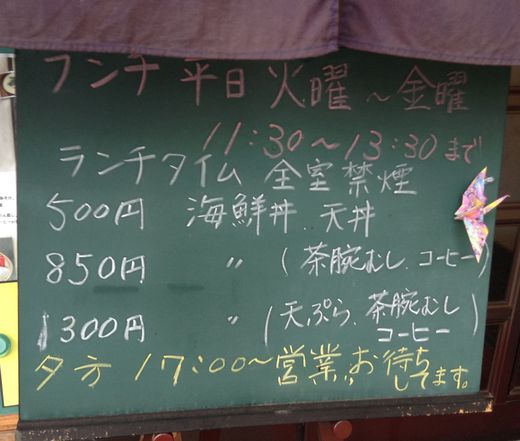 ランチ 平日 火曜～金曜
11:30～13:30まで
ランチタイム 全室禁煙
500円 海鮮丼、天丼
850円 〃 (茶腕むし、コーヒー)
1300円 〃 (天ぷら、茶腕むし
コーヒー)
夕方 17:00～営業、お待ち
してます。